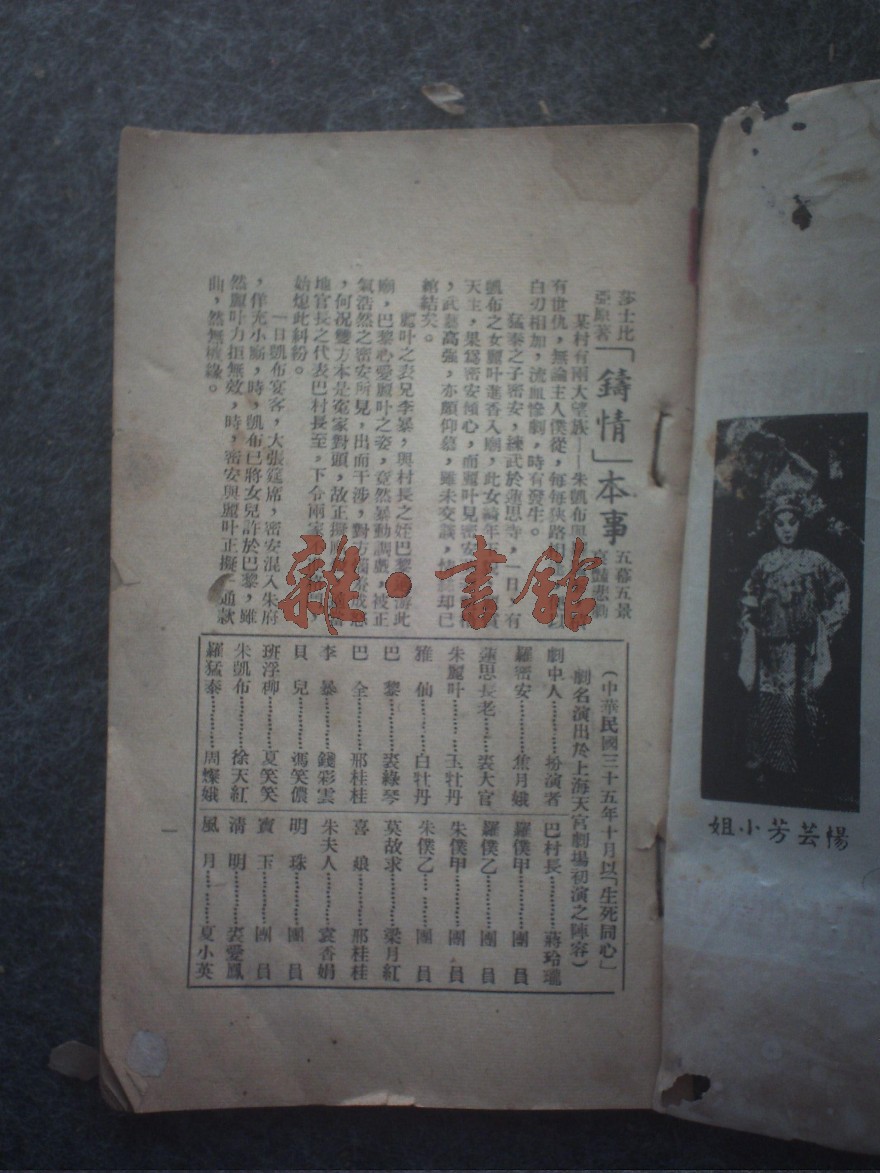 莎士比
亞原著
「鑄情」本事
五幕五景
哀艷悲劇
某村有兩大望族——朱凱布與
有世仇，無論主人僕從，每每狹路相
白刃相加，流血慘劇，時有發生。
猛泰之子密安，練武於蓮思寺，一日，有
凱布之女麗叶進香入廟，此女
天主，果爲密安傾心，而麗叶見密安
，武藝高強，亦頗仰慕，雖未交談，情 却已
綰結矣。
麗叶之表兄李暴，與村長之姪巴黎 游此
廟，巴黎心愛麗叶之姿，竟然暴動調戲，被正
氣浩然之密安所見，出而干涉，對方
，何況雙方本是冤家對頭，故正擬
地官長之代表巴村長至，下令兩家
始熄此糾紛。
一日凱布宴客，大張筵席，密安混入朱府
，佯充小廝，時，凱布已將女兒許於巴黎，雖
然麗叶力拒無效，時，密安與麗叶正擬一通款
曲，然無機緣。
（中華民國三十五年十月以「生死同心」
劇名演出於上海天宮劇場初演之陣容）
劇中人……扮演者
羅密安……焦月娥
蓮思長老……裘大官
朱麗叶……玉牡丹
雅仙……白牡丹
巴黎……裘綠琴
巴全……邢桂桂
李暴……錢彩雲
貝兒……馮笑儂
班浮柳……夏笑笑
朱凱布……徐天紅
羅猛泰……周燦娥
巴村長……蔣玲瓏
羅僕甲……團員
羅僕乙……團員
朱僕甲……團員
朱僕乙……團員
莫故求……梁月紅
喜娘……邢桂桂
朱夫人……袁香娟
明珠……團員
寶玉……團員
清明……裘愛鳳
風月……夏小英
一
姐小芳芸楊
雜·書館